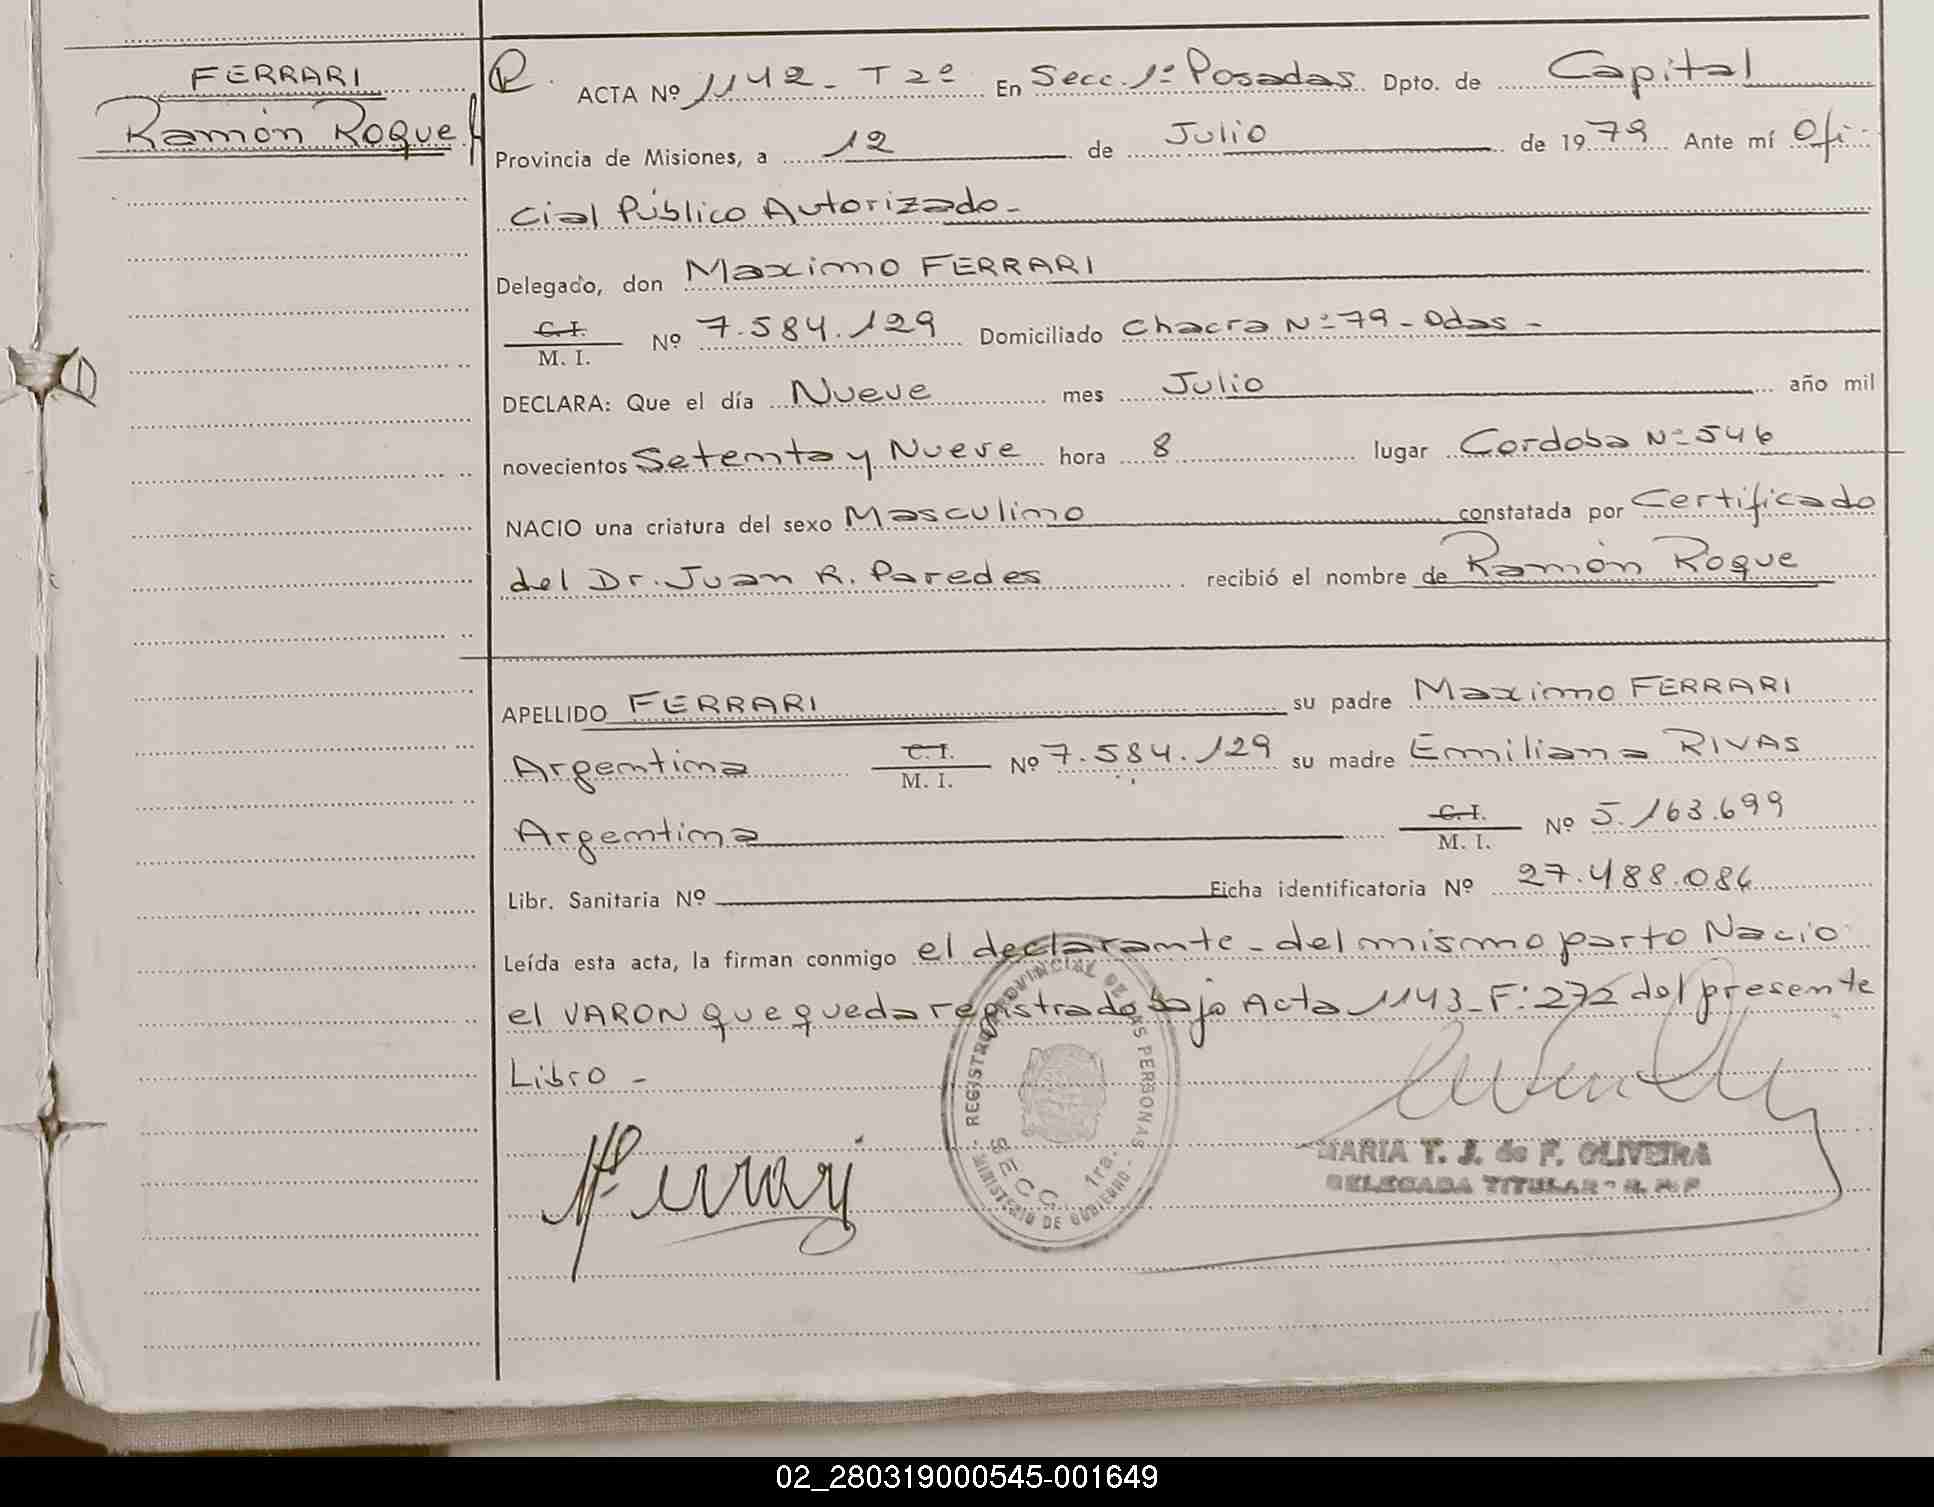 FERRARI
Ramón Roque
ACTA Nº 1142 - T 2º En Secc. 1ª Posadas Dpto. de Capital
Provincia de Misiones, a 12 de Julio de 1979 Ante mí Ofi-
cial Público Autorizado -
Delegado, don Maximo FERRARI
C.I.
M. I. Nº 7.584.129 Domiciliado Chacra Nº 79 - Odas -
DECLARA: Que el día Nueve mes Julio año mil
novecientos Setenta y Nueve hora 8 lugar Cordoba Nº 546
NACIO una criatura del sexo Masculino constatada por Certificado
del Dr. Juan R. Paredes recibió el nombre de Ramón Roque
APELLIDO FERRARI su padre Maximo FERRARI
Argentina C.I. M. I. Nº 7.584.129 su madre Emiliana RIVAS
Argentina C.I. M. I. Nº 5.163.699
Libr. Sanitaria Nº Ficha identificatoria Nº 27.488.084
Leída esta acta, la firman conmigo el declarante - del mismo parto Nacio
el VARON que queda registrado bajo Acta 1143 - F: 272 del presente
Libro -
REGISTRO PROVINCIAL DE LAS PERSONAS
SECC. 1ra.
MINISTERIO DE GOBIERNO
MARIA T. J. de F. OLIVEIRA
DELEGADA TITULAR
02_280319000545-001649